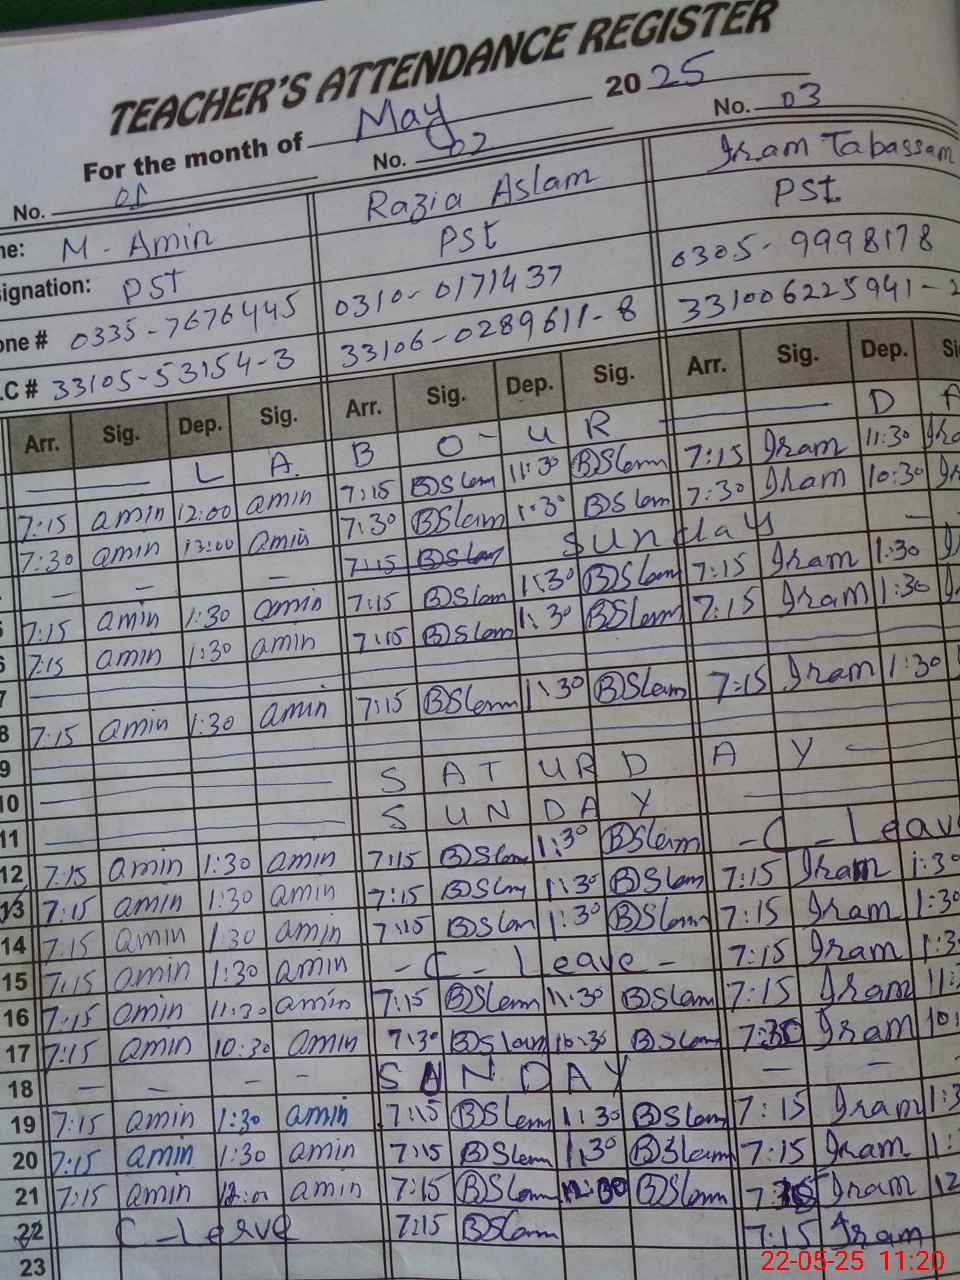 TEACHER'S ATTENDANCE REGISTER
For the month of May 2025
No. 01 No. 02 No. 03
me: M - Amin Razia Aslam Iram Tabassam
signation: PST PST PST
one # 0335-7676445 0310-0171437 0305-9998178
.C # 33105-53154-3 33106-0289611-8 331006225941-2
Arr. Sig. Dep. Sig. Arr. Sig. Dep. Sig. Arr. Sig. Dep. Si
L A. B O - U R D A
7:15 amin 12:00 amin 7:15 BSlam 11:30 BSlam 7:15 Iram 11:30 Ira
7:30 amin amin 7:30 BSlam 1:30 BSlam 7:30 Iram 10:30 Ir
- - - 7:15 BSlam Sunday -
5 7:15 amin 1:30 amin 7:15 BSlam 1:30 BSlam 7:15 Iram 1:30 I
6 7:15 amin 1:30 amin 7:15 BSlam 1:30 BSlam 7:15 Iram 1:30
7
8 7:15 amin 1:30 amin 7:15 BSlam 1:30 BSlam 7:15 Iram 1:30
9
10 SATURDAY
11 SUNDAY
12 7:15 amin 1:30 amin 7:15 BSlam 1:30 BSlam - C - Leav
13 7:15 amin 1:30 amin 7:15 BSlam 1:30 BSlam 7:15 Iram 1:30
14 7:15 amin 1:30 amin 7:15 BSlam 1:30 BSlam 7:15 Iram 1:30
15 7:15 amin 1:30 amin - C - Leave - 7:15 Iram 1:3
16 7:15 amin 11:30 amin 7:15 BSlam 11:30 BSlam 7:15 Iram 11:
17 7:15 amin 10:30 amin 7:30 BSlam 10:30 BSlam 7:30 Iram 10:
18 - - - - SUNDAY - - -
19 7:15 amin 1:30 amin 7:15 BSlam 1:30 BSlam 7:15 Iram 1:3
20 7:15 amin 1:30 amin 7:15 BSlam 1:30 BSlam 7:15 Iram 1:
21 7:15 amin 12:00 amin 7:15 BSlam BSlam Iram 12
22 C - Leave 7:15 BSlam 7:15 Iram
23
22-05-25 11:20